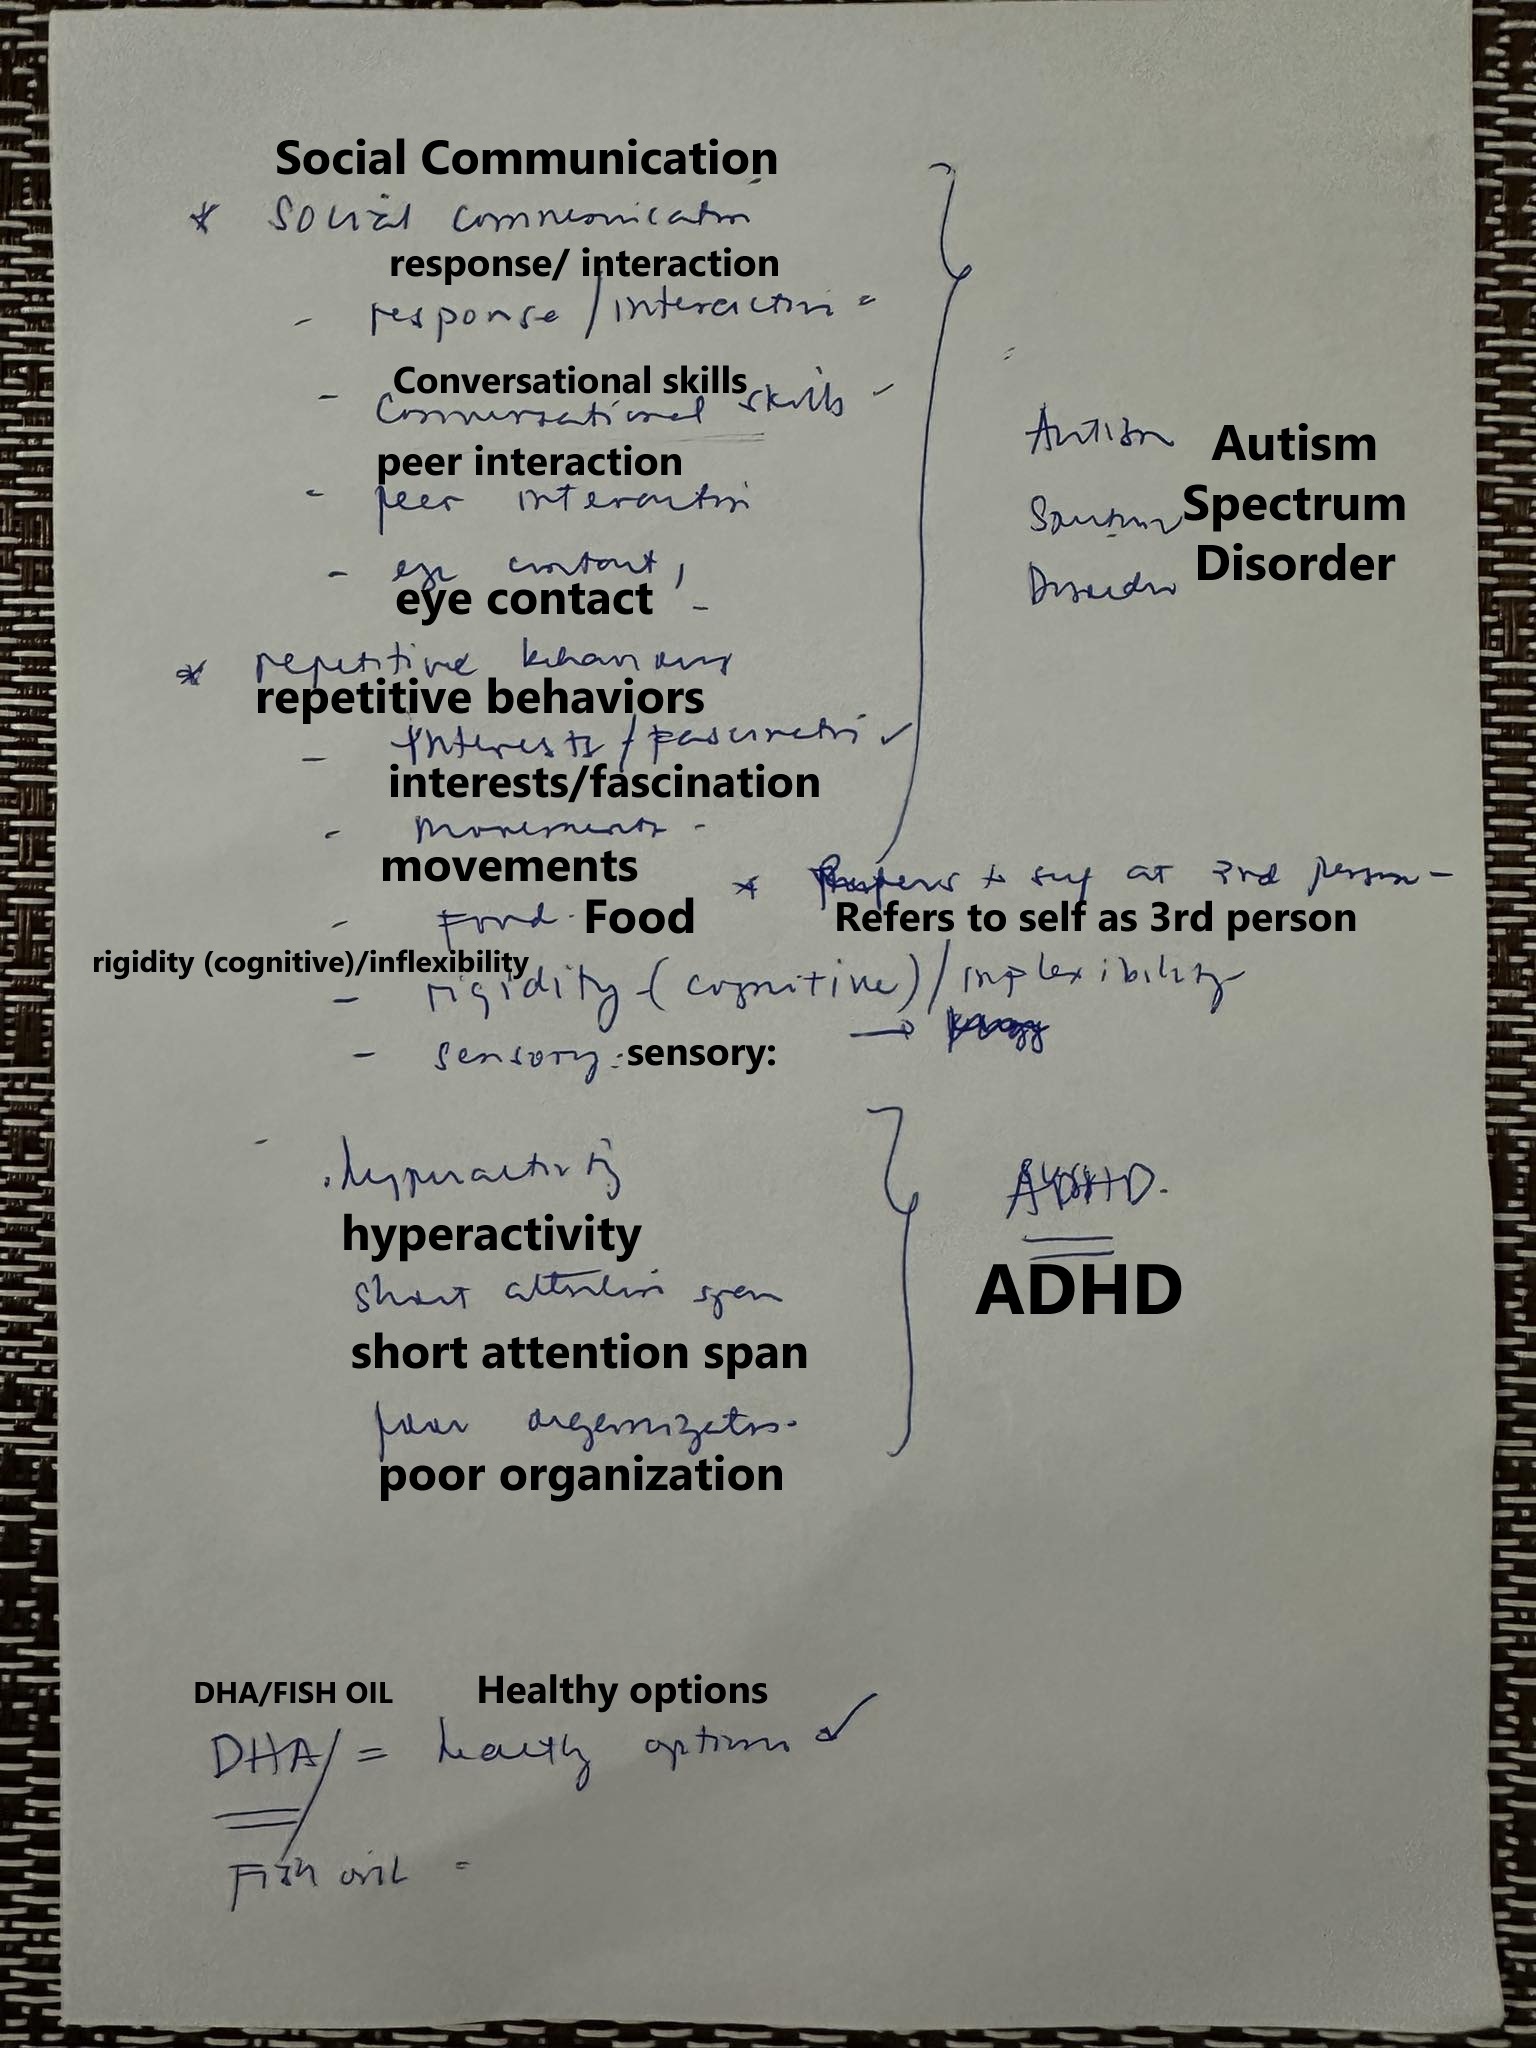 Social Communication
* Social communication
response/ interaction
- response / interaction -
Conversational skills
- Conversational skills -
peer interaction
- peer interaction
- eye contact,
eye contact -
* repetitive behaviours
repetitive behaviors
- Interests / fascination ✓
interests/fascination
- movements -
movements
* Refers to self as 3rd person -
- Food. Food
Refers to self as 3rd person
rigidity (cognitive)/inflexibility
- rigidity - (cognitive) / inflexibility
→
- sensory: sensory:
Autism Autism
Spectrum Spectrum
Disorder Disorder
. hyperactivity
hyperactivity
short attention span
short attention span
poor organization.
poor organization
ADHD.
ADHD
DHA/FISH OIL Healthy options
DHA / = healthy options ✓
Fish oil =